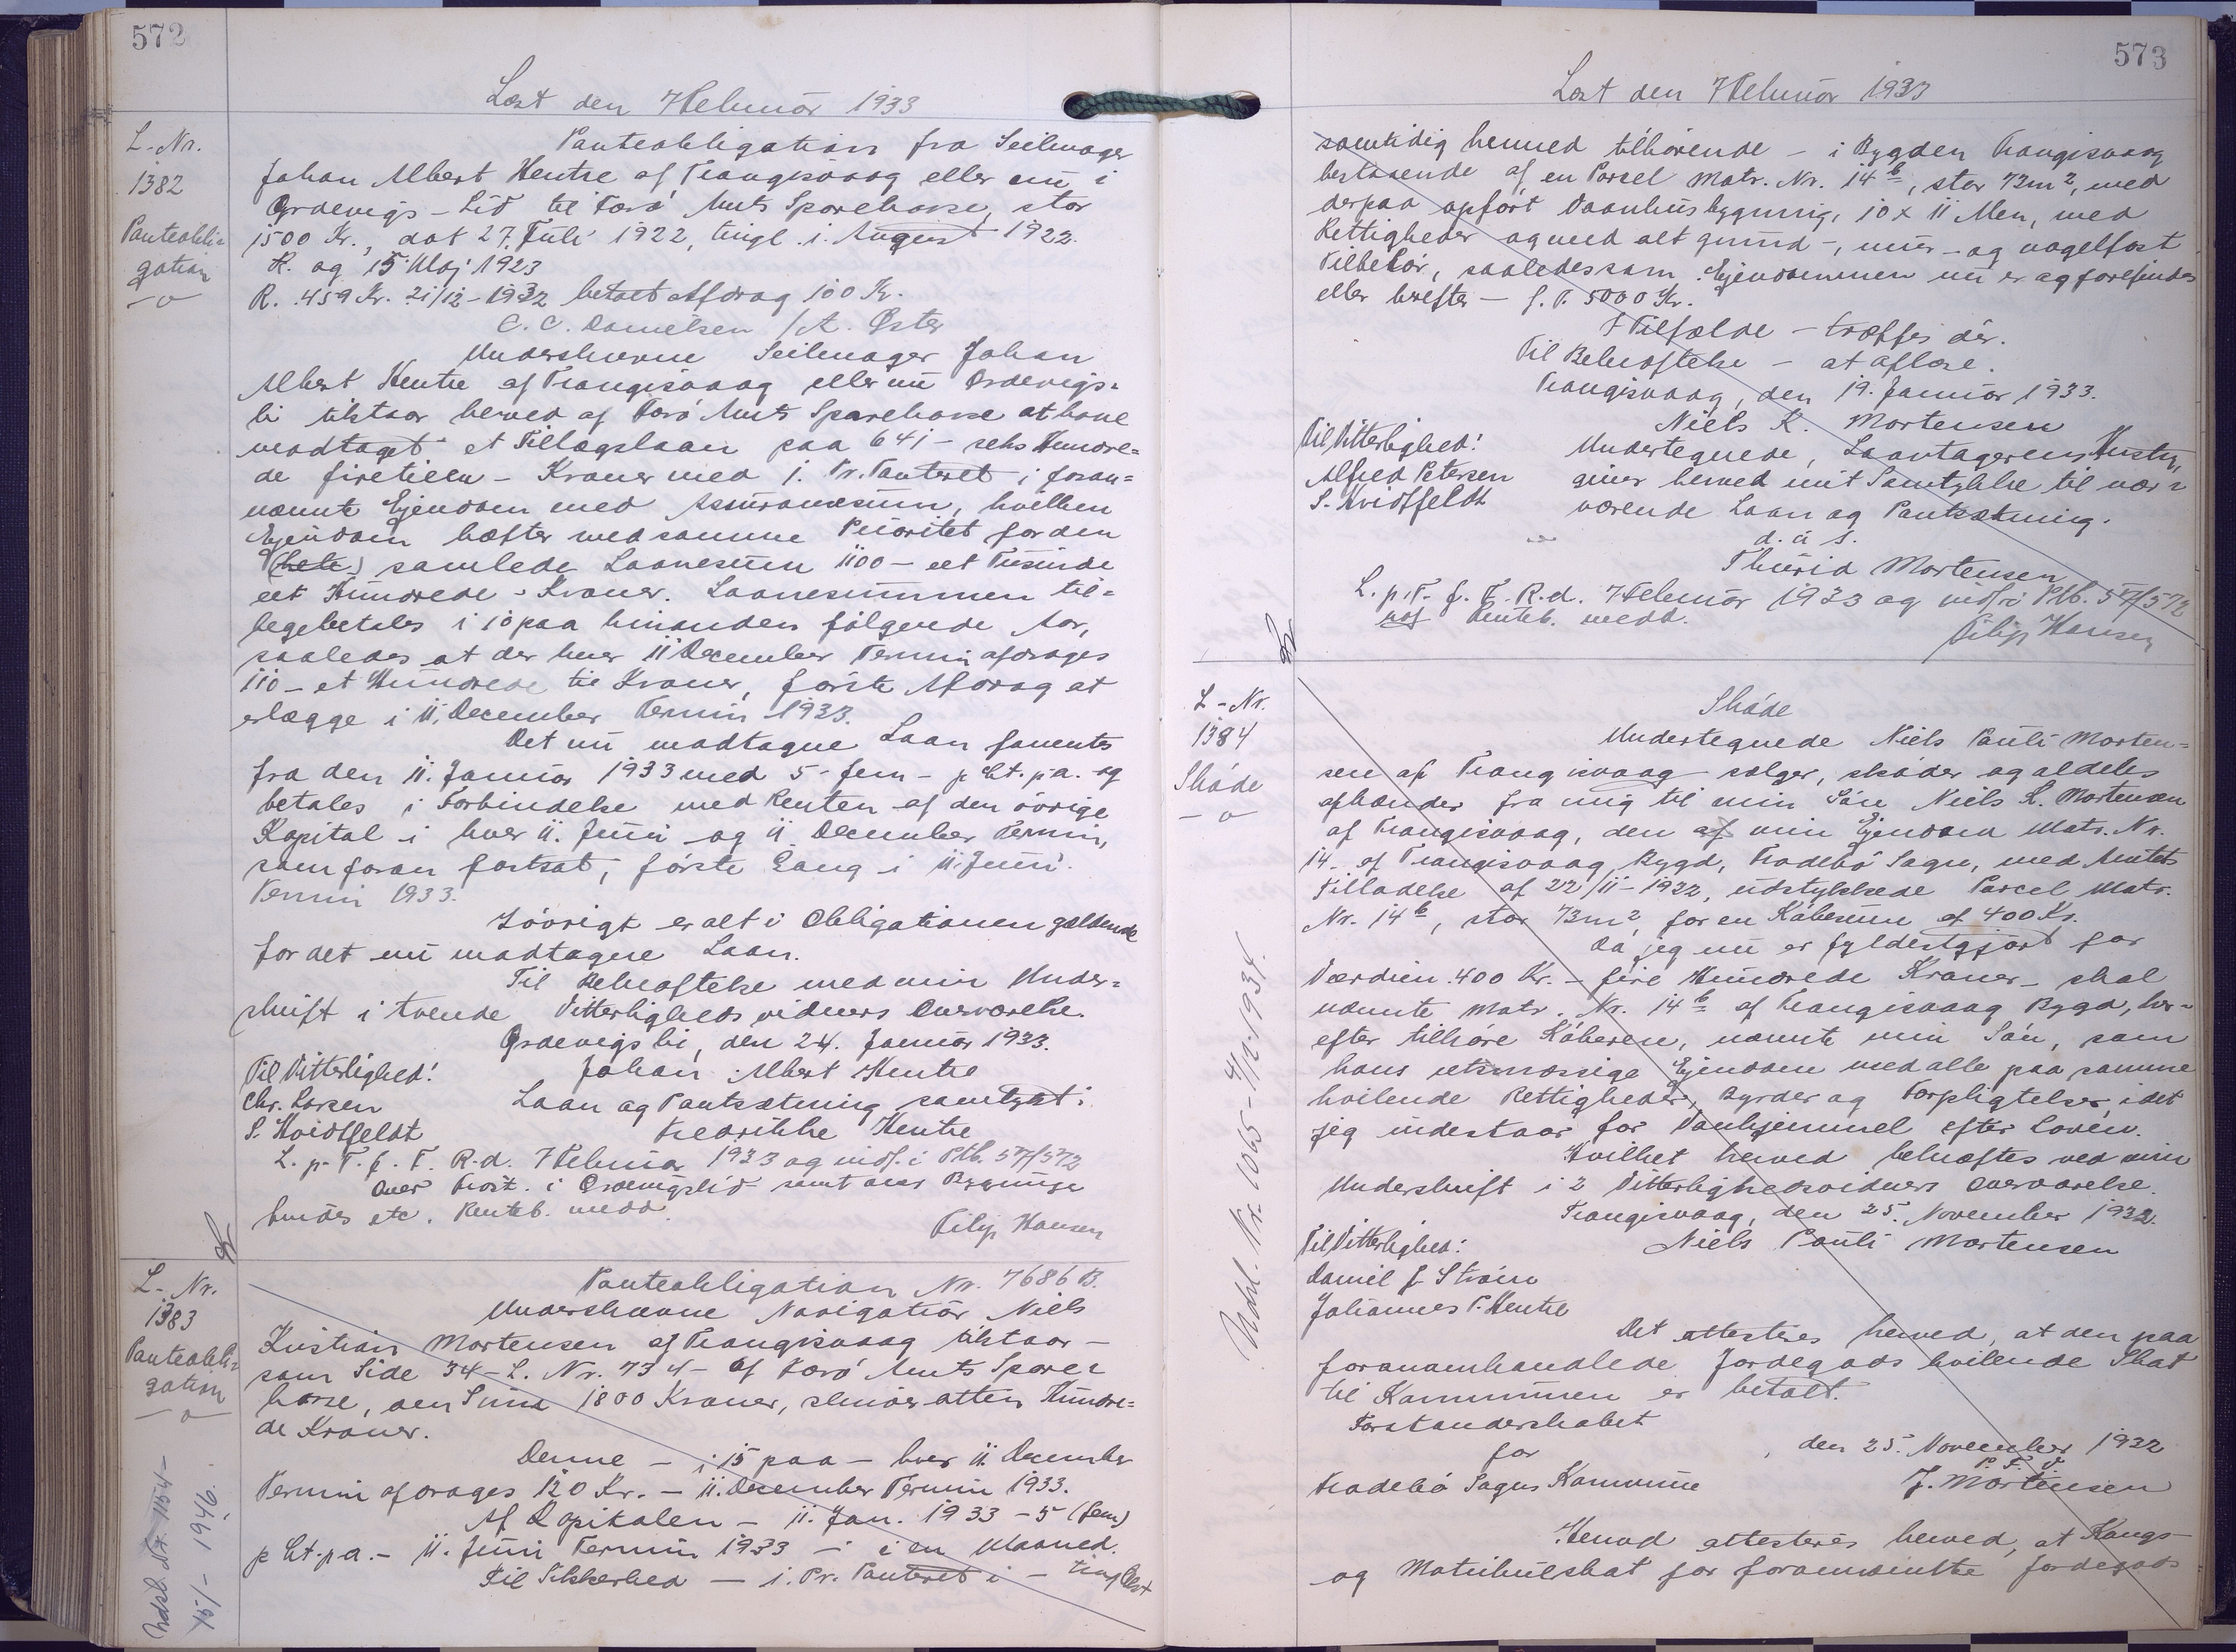 572
Læst den 7 Februar 1933
L-Nr.
1382
Panteobli-
gation
Panteobligation fra Seilmager
Johan Albert Hentze af Trangisvaag eller nu i
Ördevigs-Lid til Færö Amts Sparekasse, stor
1500 Kr., dat 27. Juli 1922, tingl. i. August 1922.
R. og 15 Maj 1923
R. 459 Kr. 21/12-1932 betalt Afdrag 100 Kr.
C. C. Danielsen /A. Øster
Underskrevne Seilmager Johan
Albert Hentze af Trangisvaag eller nu Ördevigs-
li tilstaar herved af Færö Amts Sparekasse at have
modtaget et Tillægslaan paa 641 - seks Hundre-
de firetieen - Kroner med 1. Pr. Panteret i foran-
nævnte Ejendom med Assurancesum, hvilken
Ejendom hæfter med samme Prioritet for den
(hele) samlede Laanesum 1100 - eet Tusinde
eet Hundrede - Kroner. Laanesummen til-
bagebetales i 10 paa hinanden følgende Aar,
saaledes at der hver 11 December Termin afdrages
110 - et Hundrede ti Kroner, første Afdrag at
erlægge i 11. December Termin 1933.
Det nu modtagne Laan forrentes
fra den 11. Januar 1933 med 5 - fem - p Ct. p.a. og
betales i Forbindelse med Renten af den övrige
Kapital i hver 11. Juni og 11 December Termin,
som foran fortsat, förste Gang i 11. Juni
Termin 1933.
Iövrigt er alt i Obligationen gældende
for det nu modtagne Laan.
Til Bekræftelse med min Under-
skrift i tvende Vitterligheds vidners Overværelse.
Ördevigsli, den 24. Januar 1933.
Til Vitterlighed! Johan Albert Hentze
Chr. Larsen Laan og Pantsætning samtykt:
S. Hvidtfeldt Fredrikke Hentze
L. p. T. f. F. R. d. 7 Februar 1933 og indf. i Ptb. 57/572
over Frost. i Ördevigslid samt over Bygninge
hæfter etc. Renteb. medd.
Filip Hansen
L-Nr.
1383
Panteobli-
gation
Udsl. Nr. 1154-
15/- 1946.
Panteobligation Nr. 7686 B.
Underskrevne Navigatör Niels
Kristian Mortensen af Trangisvaag tilstaar -
som Side 34 - L. Nr. 734 - af Færö Amts Spare-
kasse, den Sum 1800 Kroner, skriver atten Hundre-
de Kroner.
Denne - i 15 paa - hver 11 December
Termin afdrages 120 Kr. - 11. December Termin 1933.
Af Kapitalen - 11. Jan. 1933 - 5 (fem)
p Ct. p.a. - 11. Juni Termin 1933 - i en Maaned.
Til Sikkerhed - 1. Pr. Panteret i - tinglæst
573
Læst den 7 Februar 1933
samtidig hermed tilhörende - i Bygden Trangisvaag
bestaaende af en Parsel Matr. Nr. 14b, stor 73m2, med
derpaa opfört Vaanhusbygning, 10 x 11 Alen, med
Rettigheder og med alt grund-, mur- og nagelfast
Tilbehör, saaledes som Ejendommen nu er og forefindes
eller herefter - f. T. 5000 Kr.
I Tilfælde - træffes der.
Til Bekræftelse - at aflæse.
Trangisvaag, den 19. Januar 1933.
Niels K. Mortensen
Til Vitterlighed! Undertegnede, Laantagerens Hustru,
Alfred Petersen giver herved mit Samtykke til nær-
S. Hvidtfeldt værende Laan og Pantsætning.
d. u s.
Thurid Mortensen
L. p. T. f. F. R. d. 7 Februar 1933 og indf. i Ptb. 57/572
Renteb. medd.
Filip Hansen
L-Nr.
1384
Sköde
Udsl. Nr. 1065 - 4/12-1934.
Sköde
Undertegnede Niels Pauli Morten-
sen af Trangisvaag sælger, sköder og aldeles
afhænder fra mig til min Sön Niels K. Mortensen
af Trangisvaag, den af min Ejendom Matr. Nr.
14 af Trangisvaag Bygd, Frodebö Sogn, med Amtets
Tilladelse af 22/11-1932, udstykkede Parcel Matr.
Nr. 14b, stor 73m2 for en Köbesum af 400 Kr.
Da jeg nu er fyldestgjort for
Værdien 400 Kr. - fire Hundrede Kroner - skal
nævnte Matr. Nr. 14b af Trangisvaag Bygd, her-
efter tilhöre Köberen, nævnte min Sön, som
hans retsmæssige Ejendom med alle paa samme
hvilende Rettigheder, Byrder og Forpligtelser, idet
jeg indestaar for Vanhjemmel efter Loven.
Hvilket herved bekræftes ved min
Underskrift i 2 Vitterlighedsvidners Overværelse.
Trangisvaag, den 25. November 1932.
Til Vitterlighed: Niels Pauli Mortensen
Daniel J. Ström
Johannes P. Hentze
Det attesteres herved, at den paa
foranomhandlede Jordegods hvilende Skat
til Kommunen er betalt.
Forstanderskabet
for , den 25. November 1932
P. F. V.
Frodebö Sogns Kommune J. Mortensen
Herved attesteres herved, at Kongs-
og Matrikulskat for forannævnte Jordegods